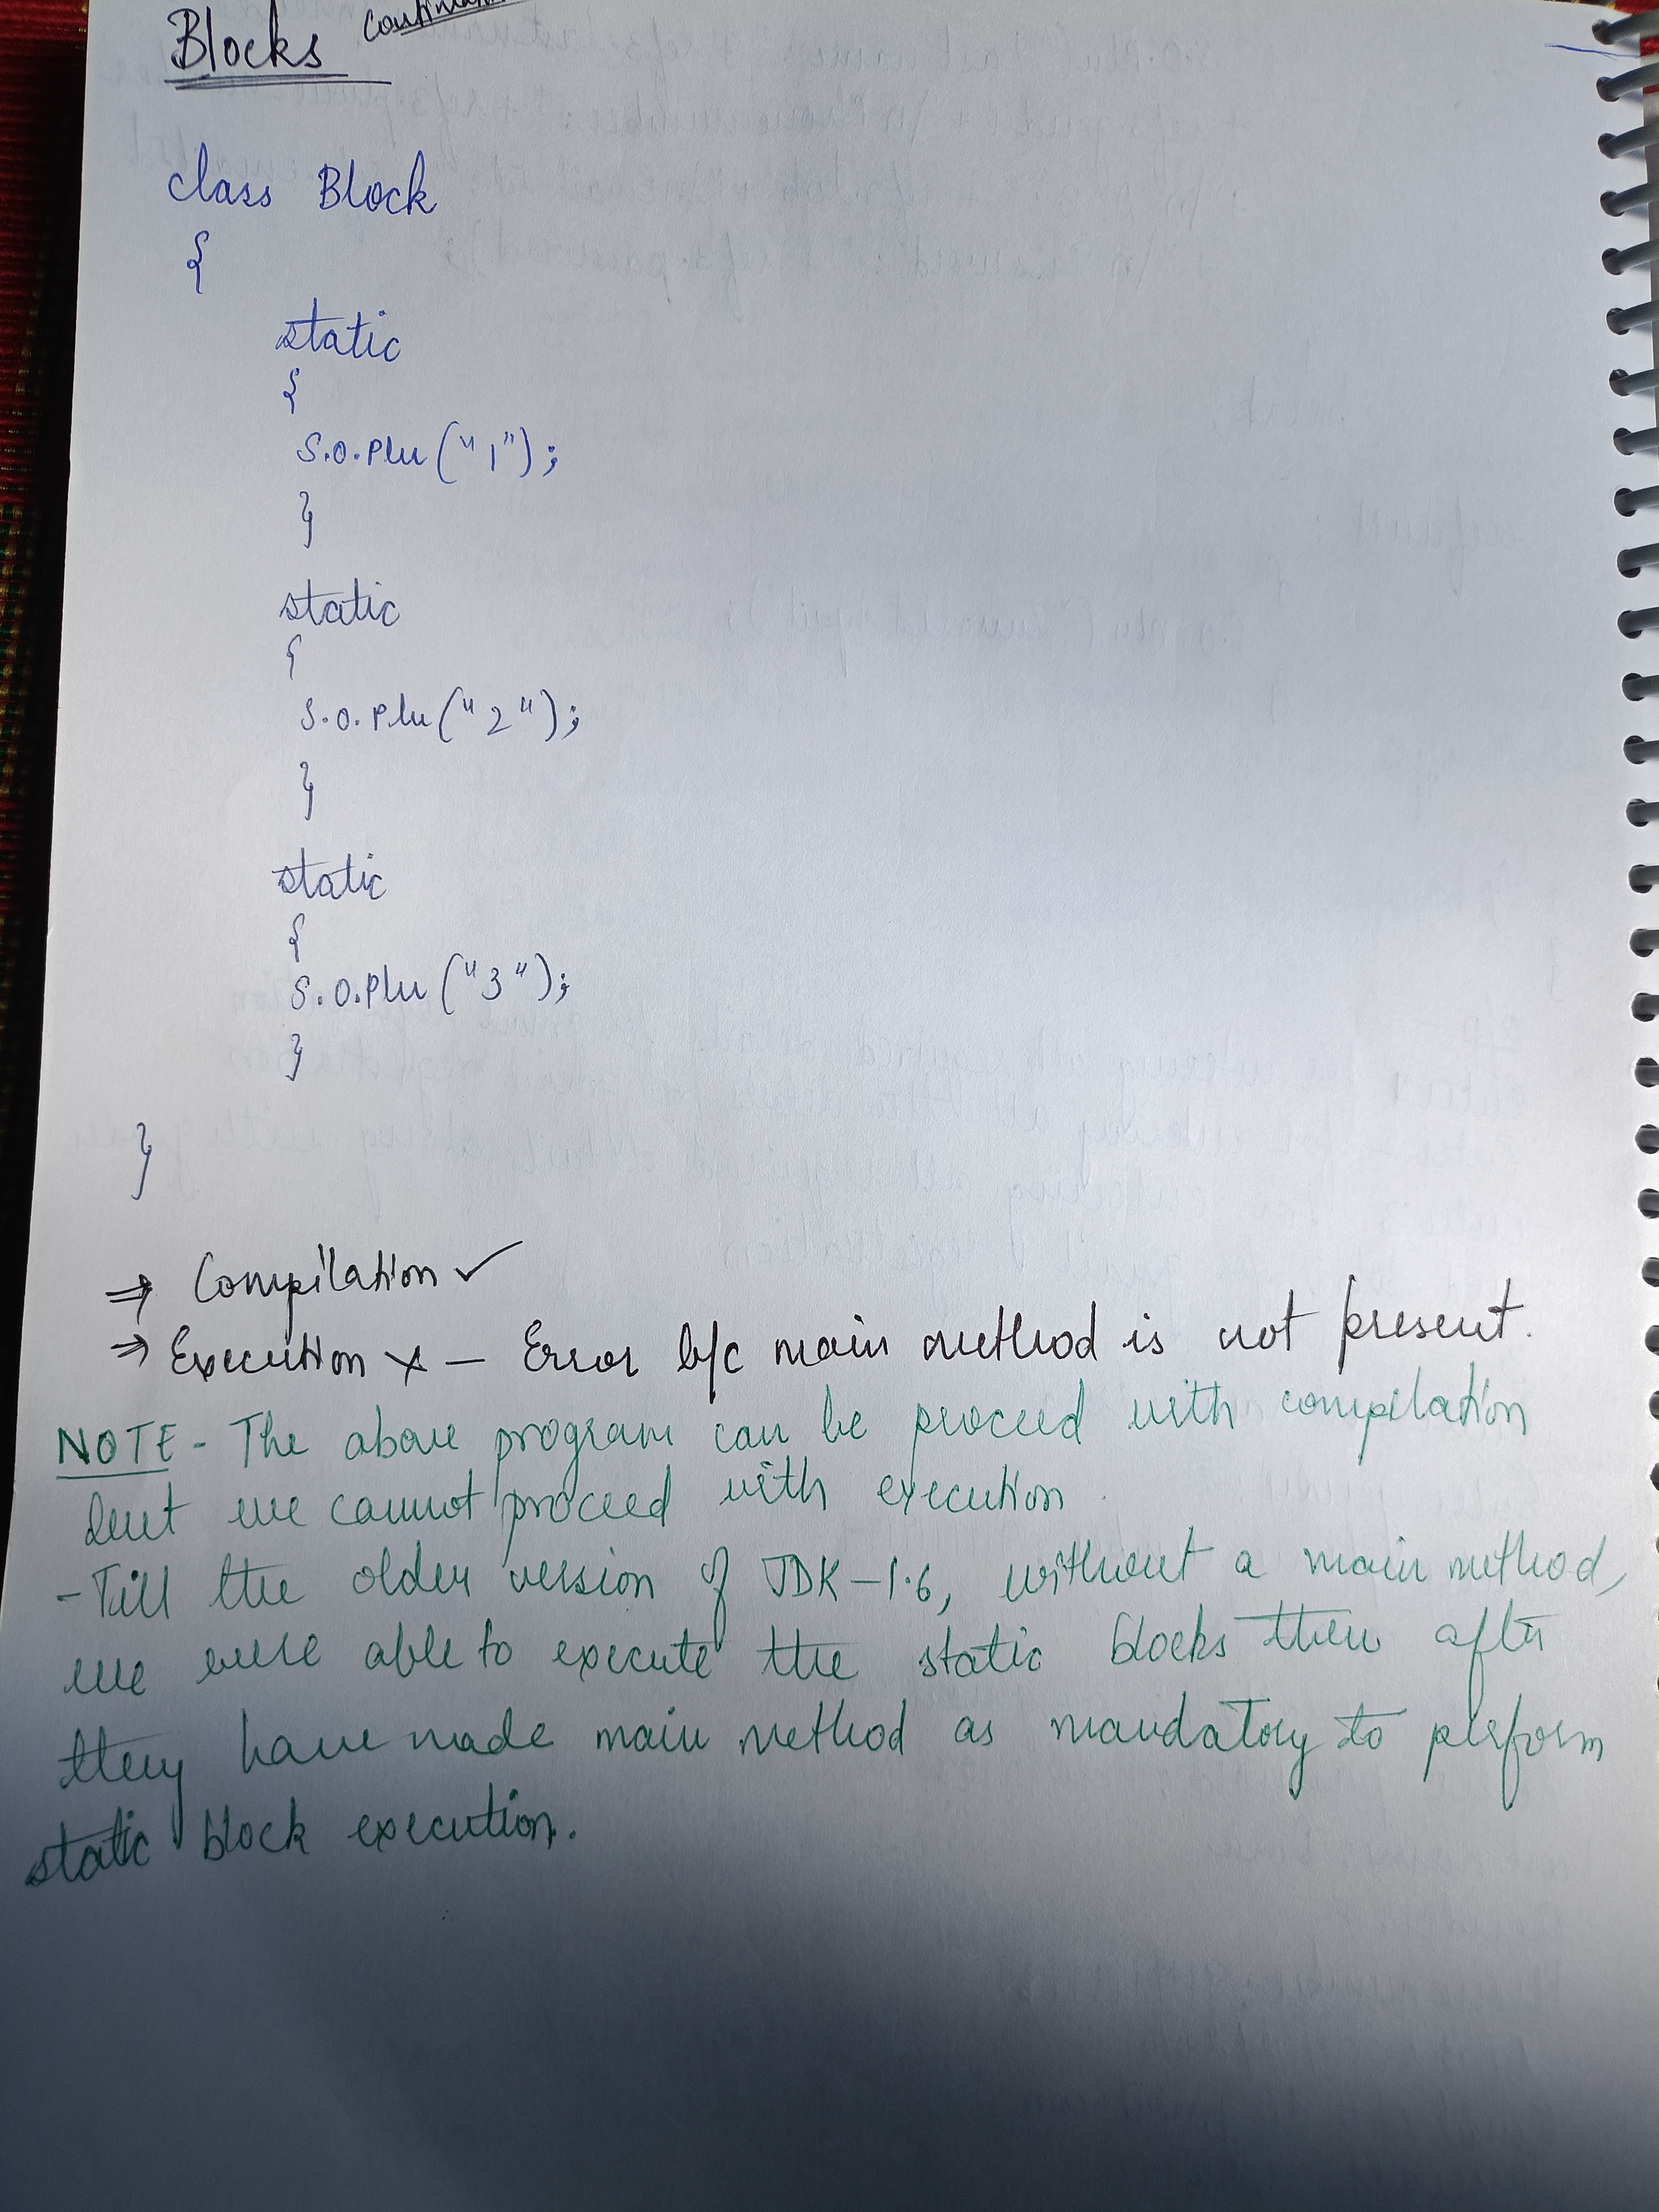 Blocks
class Block
{
static
{
S.O.Pln("1");
}
static
{
S.O.Pln("2");
}
static
{
S.O.Pln("3");
}
}
⇒ Compilation ✓
⇒ Execution × — Error b/c main method is not present.
NOTE - The above program can be proceed with compilation
but we cannot proceed with execution.
- Till the older version of JDK-1.6, without a main method,
we were able to execute the static blocks then after
they have made main method as mandatory to perform
static block execution.